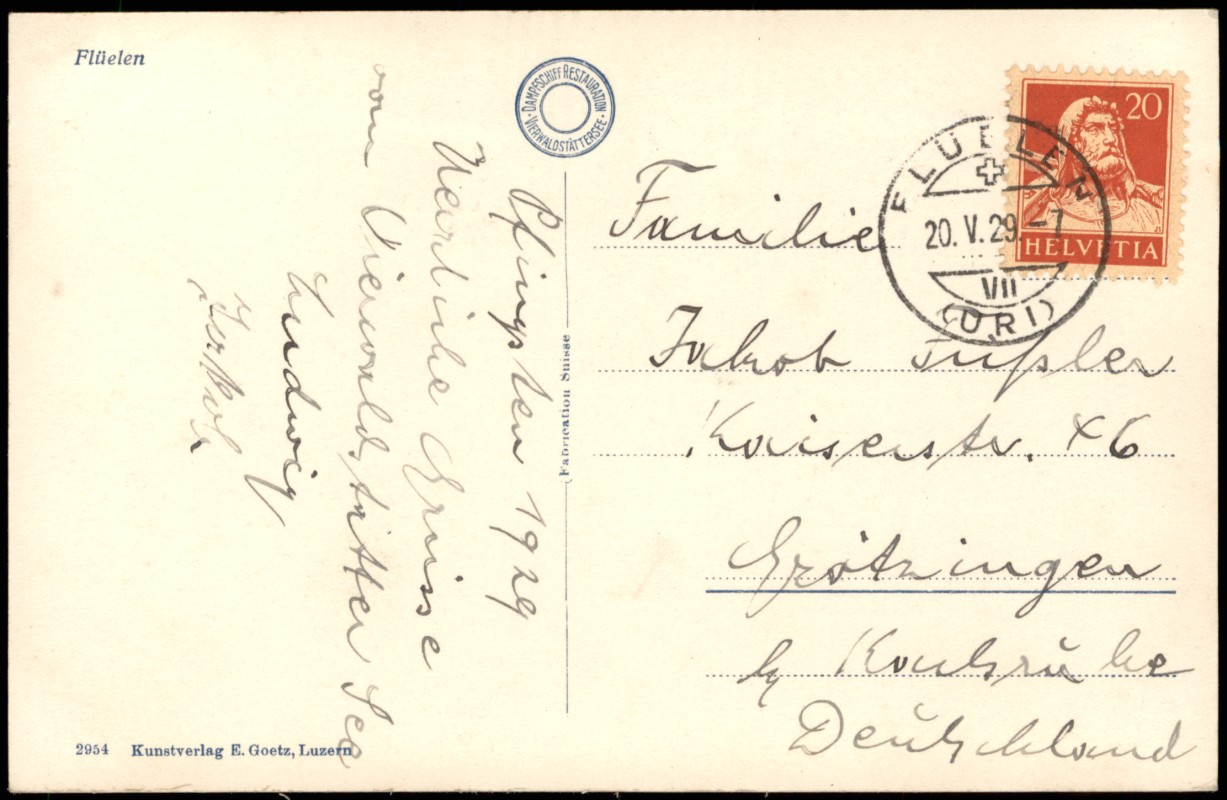 Flüelen
DAMPFSCHIFF RESTAURATION
VIERWALDSTÄTTERSEE
Pfingsten 1929
Herzliche Grüsse
vom Vierwaldstätter See
Ludwig
20
HELVETIA
FLÜELEN
20. V. 29. -7
VII
(URI)
Familie
Jakob Fußler
Kaiserstr. 46
Grötzingen
b/ Karlsruhe
Deutschland
(Fabrication Suisse
2954 Kunstverlag E. Goetz, Luzern